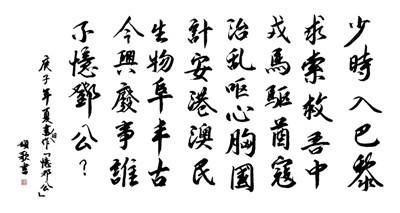 少時入巴黎
求索救吾中
戎馬驅酋寇
治亂嘔心胸國
計安港澳民
生物阜丰古
今興廢事誰
不憶鄧公？
庚子年夏畫作「憶鄧公」
頌歌書